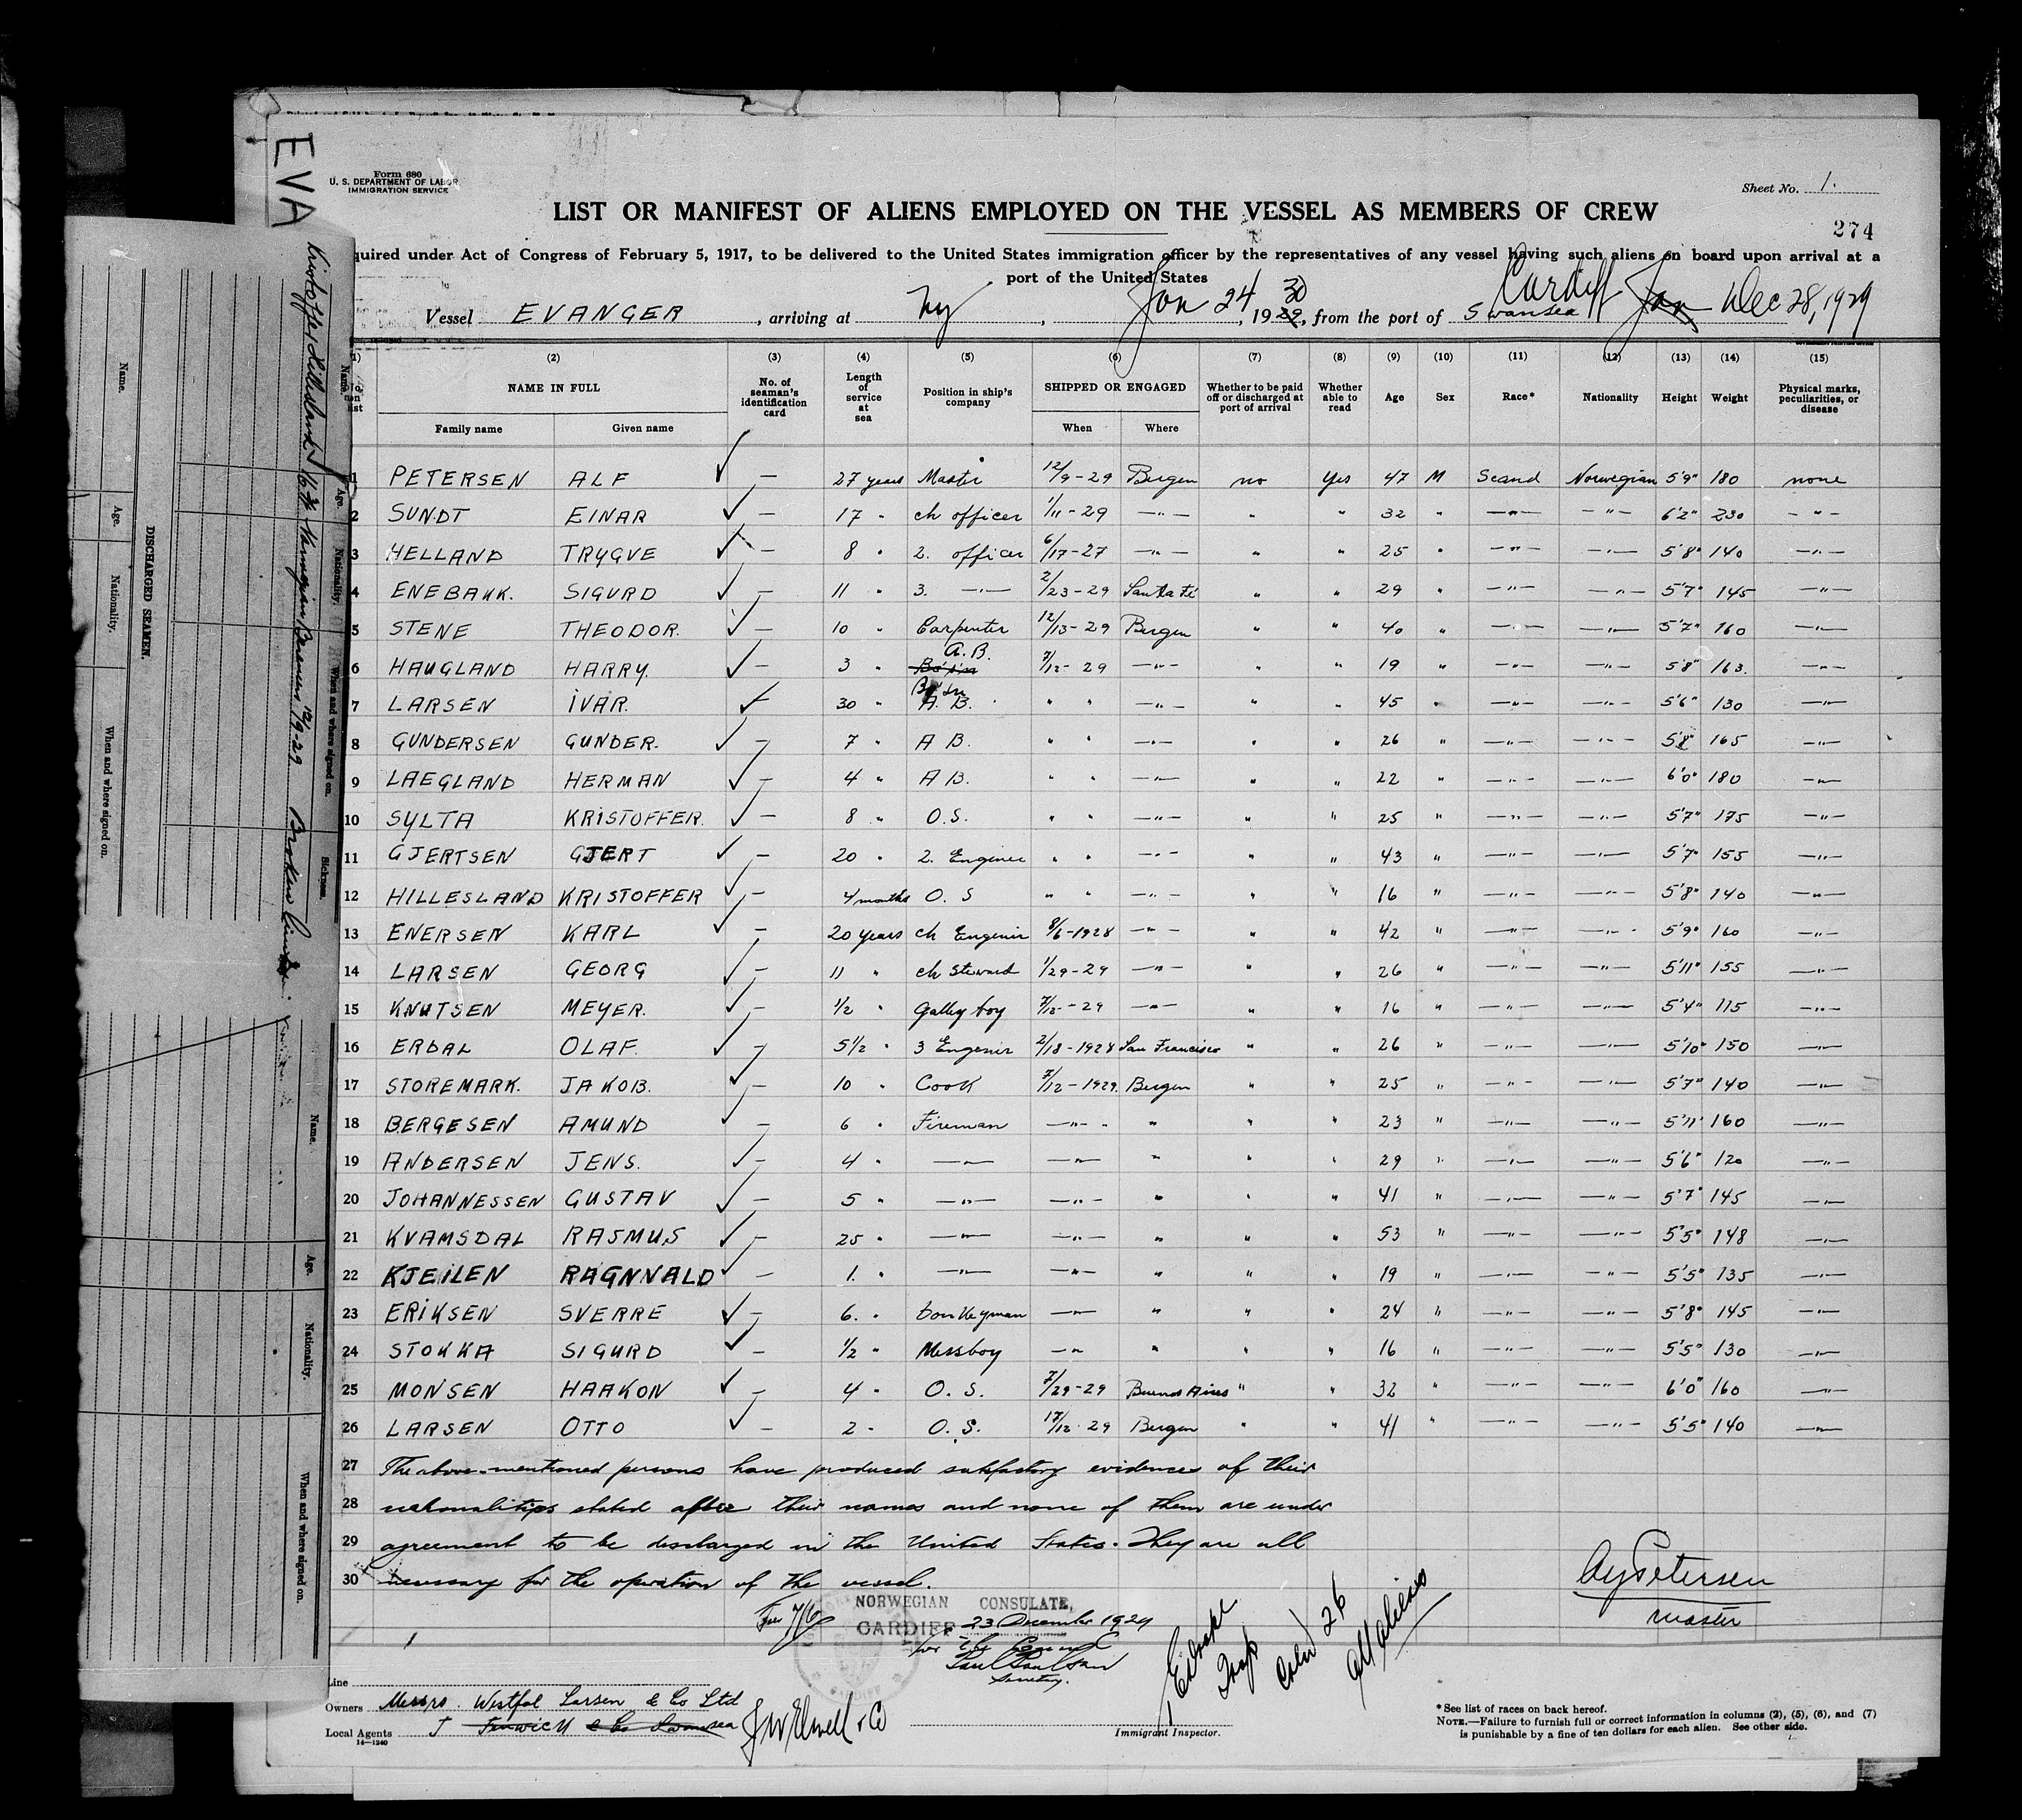 EVA
Form 680
U. S. DEPARTMENT OF LABOR
IMMIGRATION SERVICE
Sheet No. 1.
LIST OR MANIFEST OF ALIENS EMPLOYED ON THE VESSEL AS MEMBERS OF CREW
274
quired under Act of Congress of February 5, 1917, to be delivered to the United States immigration officer by the representatives of any vessel having such aliens on board upon arrival at a
port of the United States
Vessel EVANGER, arriving at Ny, Jan 24, 1929, 30 from the port of Swansea Cardiff Jan Dec 28, 1929
(1) (2) (3) (4) (5) (6) (7) (8) (9) (10) (11) (12) (13) (14) (15)
NAME IN FULL No. of seaman's identification card Length of service at sea Position in ship's company SHIPPED OR ENGAGED Whether to be paid off or discharged at port of arrival Whether able to read Age Sex Race* Nationality Height Weight Physical marks, peculiarities, or disease
Family name Given name When Where
1 PETERSEN ALF ✓ — 27 years Master 12/9-29 Bergen no Yes 47 M Scand Norwegian 5'9" 180 none
2 SUNDT EINAR ✓ — 17 " ch officer 1/11-29 —"— " " 32 " —"— —"— 6'2" 230 —"—
3 HELLAND TRYGVE ✓ — 8 " 2. officer 6/17-27 —"— " " 25 " —"— —"— 5'8" 140 —"—
4 ENEBAUK. SIGURD ✓ — 11 " 3. —"— 2/23-29 Santa Fé " " 29 " —"— —"— 5'7" 145 —"—
5 STENE THEODOR. ✓ — 10 " Carpenter 12/13-29 Bergen " " 40 " —"— —"— 5'7" 160 —"—
6 HAUGLAND HARRY. ✓ — 3 " Bo's'n A.B. 7/12-29 —"— " " 19 " —"— —"— 5'8" 163. —"—
7 LARSEN IVAR. ✓ 30 " A.B. Bo'sn " " —"— " " 45 " —"— —"— 5'6" 130 —"—
8 GUNDERSEN GUNDER. ✓ — 7 " A B. " " —"— " " 26 " —"— —"— 5'8" 165 —"—
9 LAEGLAND HERMAN ✓ — 4 " A B. " " —"— " " 22 " —"— —"— 6'0" 180 —"—
10 SYLTA KRISTOFFER. ✓ — 8 " O.S. " " —"— " " 25 " —"— —"— 5'7" 175 —"—
11 GJERTSEN GJERT ✓ — 20 " 2. Enginer " " —"— " " 43 " —"— —"— 5'7" 155 —"—
12 HILLESLAND KRISTOFFER ✓ — 4 months O. S " " —"— " " 16 " —"— —"— 5'8" 140 —"—
13 ENERSEN KARL ✓ — 20 years ch Enginir 8/6-1928 —"— " " 42 " —"— —"— 5'9" 160 —"—
14 LARSEN GEORG ✓ — 11 " ch steward 1/29-29 —"— " " 26 " —"— —"— 5'11" 155 —"—
15 KNUTSEN MEYER. ✓ — 1/2 " Galley boy 7/12-29 —"— " " 16 " —"— —"— 5'4" 115 —"—
16 ERDAL OLAF. ✓ — 5 1/2 " 3 Enginir 2/18-1928 San Francisco " " 26 " —"— —"— 5'10" 150 —"—
17 STOREMARK. JAKOB. ✓ — 10 " Cook 7/12-1929. Bergen " " 25 " —"— —"— 5'7" 140 —"—
18 BERGESEN AMUND ✓ — 6 " Fireman —"— " " " 23 " —"— —"— 5'11" 160 —"—
19 ANDERSEN JENS. ✓ — 4 " —"— —"— " " " 29 " —"— —"— 5'6" 120 —"—
20 JOHANNESSEN GUSTAV ✓ — 5 " —"— —"— " " " 41 " —"— —"— 5'7" 145 —"—
21 KVAMSDAL RASMUS ✓ — 25 " —"— —"— " " " 53 " —"— —"— 5'5" 148 —"—
22 KJEILEN RAGNVALD ✓ — 1. " —"— —"— " " " 19 " —"— —"— 5'5" 135 —"—
23 ERIKSEN SVERRE ✓ — 6. " Donkeyman —"— " " " 24 " —"— —"— 5'8" 145 —"—
24 STOKKA SIGURD ✓ — 1/2 " Messboy —"— " " " 16 " —"— —"— 5'5" 130 —"—
25 MONSEN HAAKON ✓ — 4 " O. S. 7/29-29 Buenos Aires " " 32 " —"— —"— 6'0" 160 —"—
26 LARSEN OTTO ✓ — 2 " O. S. 17/12 29 Bergen " " 41 " —"— —"— 5'5" 140 —"—
27 The above-mentioned persons have produced satisfactory evidences of their
28 nationalities stated after their names and none of them are under
29 agreement to be discharged in the United States. They are all
30 necessary for the operation of the vessel.
AyPetersen
master
Fee 7/6
NORWEGIAN CONSULATE,
CARDIFF 23 December 1929
for
Paul Paulsen
Secretary.
26
all aliens
Line
Owners Messrs. Westfal Larsen & Co Ltd
Local Agents J Fenwick & Co Swansea JW Elwell & Co
14—1240
Immigrant Inspector.
*See list of races on back hereof.
NOTE.—Failure to furnish full or correct information in columns (2), (5), (6), and (7)
is punishable by a fine of ten dollars for each alien. See other side.
DISCHARGED SEAMEN.
Name. Age. Nationality. When and where signed on.
Name Age. Nationality. When and where signed on. Sickness.
Kristoffer Hillesland 16 Norwegian 12/9-29 Broken
Name. Age. Nationality. When and where signed on.